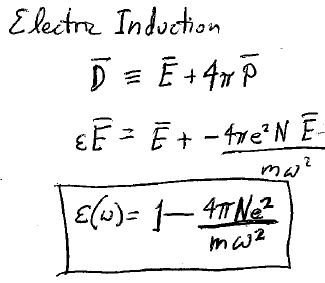 Electric Induction
D̄ ≡ Ē + 4πP̄
εĒ = Ē + -4πe²N Ē / mω²
ε(ω) = 1 - 4πNe² / mω²